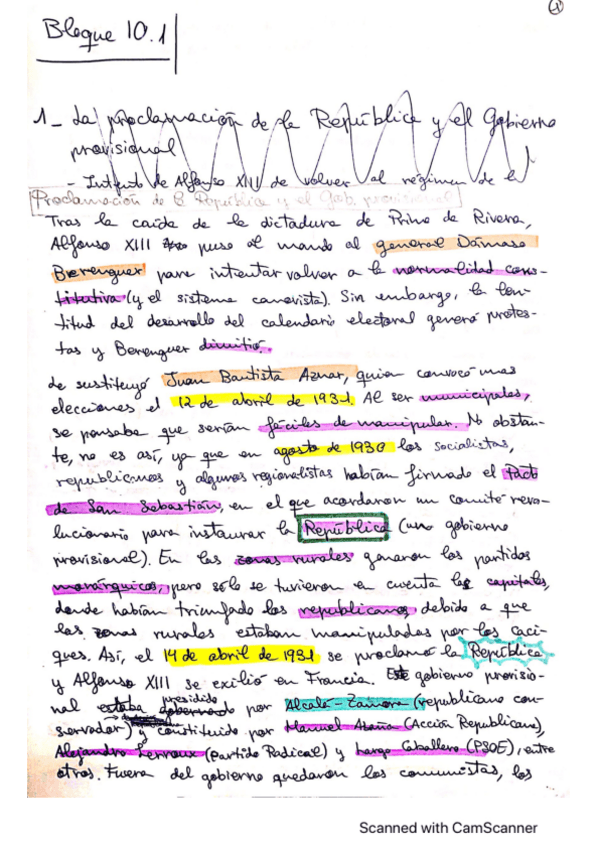 1
Bloque 10.1
1- La proclamación de la República y el Gobierno
provisional
- Intento de Alfonso XIII de volver al régimen de
Proclamación de la República y el Gob. provisional
Tras la caída de la dictadura de Primo de Rivera,
Alfonso XIII puso al mando al general Dámaso
Berenguer para intentar volver a la normalidad cons-
titutiva (y el sistema canovista). Sin embargo, la len-
titud del desarrollo del calendario electoral generó protes-
tas y Berenguer dimitió.
Le sustituyó Juan Bautista Aznar, quien convocó unas
elecciones el 12 de abril de 1931. Al ser municipales,
se pensaba que serían fáciles de manipular. No obstan-
te, no es así, ya que en agosto de 1930 los socialistas,
republicanos y algunos regionalistas habían firmado el Pacto
de San Sebastián, en el que acordaron un comité revo-
lucionario para instaurar la República (uno gobierno
provisional). En las zonas rurales ganaron los partidos
monárquicos, pero sólo se tuvieron en cuenta las capitales,
donde habían triunfado los republicanos, debido a que
las zonas rurales estaban manipuladas por los caci-
ques. Así, el 14 de abril de 1931 se proclamó la República
y Alfonso XIII se exilió en Francia. Este gobierno provisio-
nal estaba presidido por Alcalá-Zamora (republicano con-
servador) y constituido por Manuel Azaña (Acción Republicana),
Alejandro Lerroux (partido Radical) y Largo Caballero (PSOE), entre
otros. Fuera del gobierno quedaron los comunistas, los
Scanned with CamScanner